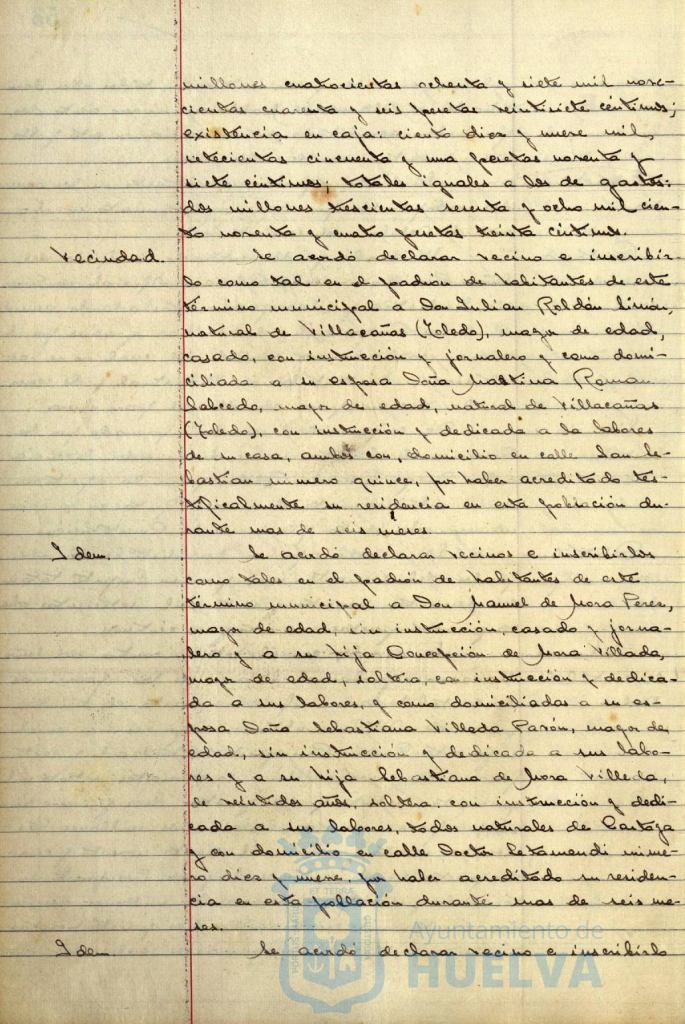 millones cuatrocientas ochenta y siete mil nove-
cientas cuarenta y seis pesetas veintisiete céntimos;
existencia en caja: ciento diez y nueve mil,
setecientas cincuenta y una pesetas noventa y
siete céntimos; totales iguales a los de gastos:
dos millones trescientas sesenta y ocho mil cien-
to noventa y cuatro pesetas treinta céntimos.
Vecindad. Se acordó declarar vecino e inscribir-
lo como tal en el padrón de habitantes de este
término municipal a Don Julian Roldán Simón,
natural de Villacañas (Toledo), mayor de edad,
casado, con instrucción y jornalero y como domi-
ciliada a su esposa Doña Martina Roman
Salcedo, mayor de edad, natural de Villacañas
(Toledo), con instrucción y dedicada a la labores
de su casa, ambos con domicilio en calle San Se-
bastian número quince, por haber acreditado tes-
tificalmente su residencia en esta población du-
rante mas de seis meses.
Idem. Se acordó declarar vecinos e inscribirlos
como tales en el padrón de habitantes de este
término municipal a Don Manuel de Mora Perez,
mayor de edad, sin instrucción, casado y jorna-
lero y a su hija Concepción de Mora Villada,
mayor de edad, soltera, con instrucción y dedica-
da a sus labores, y como domiciliadas a su es-
posa Doña Sebastiana Villeda Pavón, mayor de
edad, sin instrucción y dedicada a sus labo-
res y a su hija Sebastiana de Mora Villeda,
de veintidos años, soltera, con instrucción y dedi-
cada a sus labores, todos naturales de Cartaya
y con domicilio en calle Doctor Letamendi núme-
ro diez y nueve, por haber acreditado su residen-
cia en esta población durante mas de seis me-
ses.
Idem Se acordó declarar vecino e inscribirlo
Ayuntamiento de
HUELVA